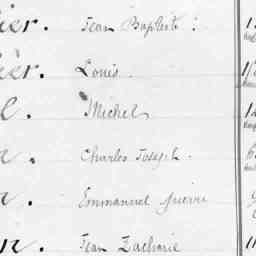 ier. Jean Baptiste
ier. Louis.
e. Michel
r. Charles Joseph.
r. Emmanuel Pierre
n. Jean Zacharie